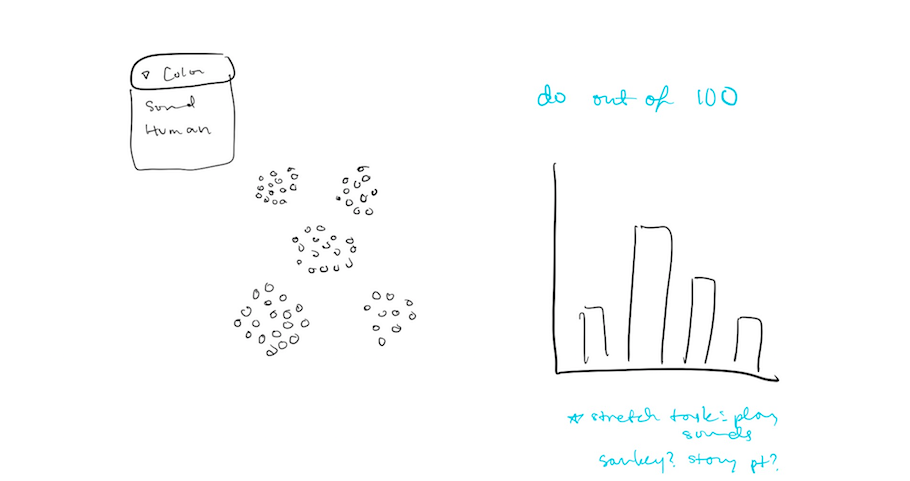 Color
Sound
Human
do out of 100
* stretch task: play
sounds
sankey? story pt?